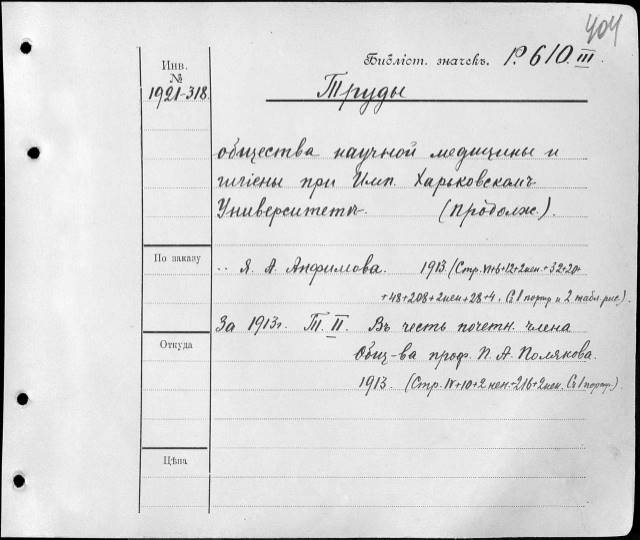 404
Библіот. значекъ. Р. 610. III
Инв.
№
1921-318
Труды
общества научной медицины и
гигіены при Имп. Харьковскомъ
Университетѣ. (Продолж.).
По заказу
.. Я. А. Анфимова. 1913. (Стр. VI+6+12+2нен.+32+20+
+48+208+2нен+28+4. Съ 1 портр и 2 табл. рис.)
За 1913г. Т. II. Въ честь почетн. члена
Откуда
Общ-ва проф. П. А. Полякова.
1913. (Стр. IV+10+2 нен.+216+2нен. Съ 1 портр.)
Цѣна